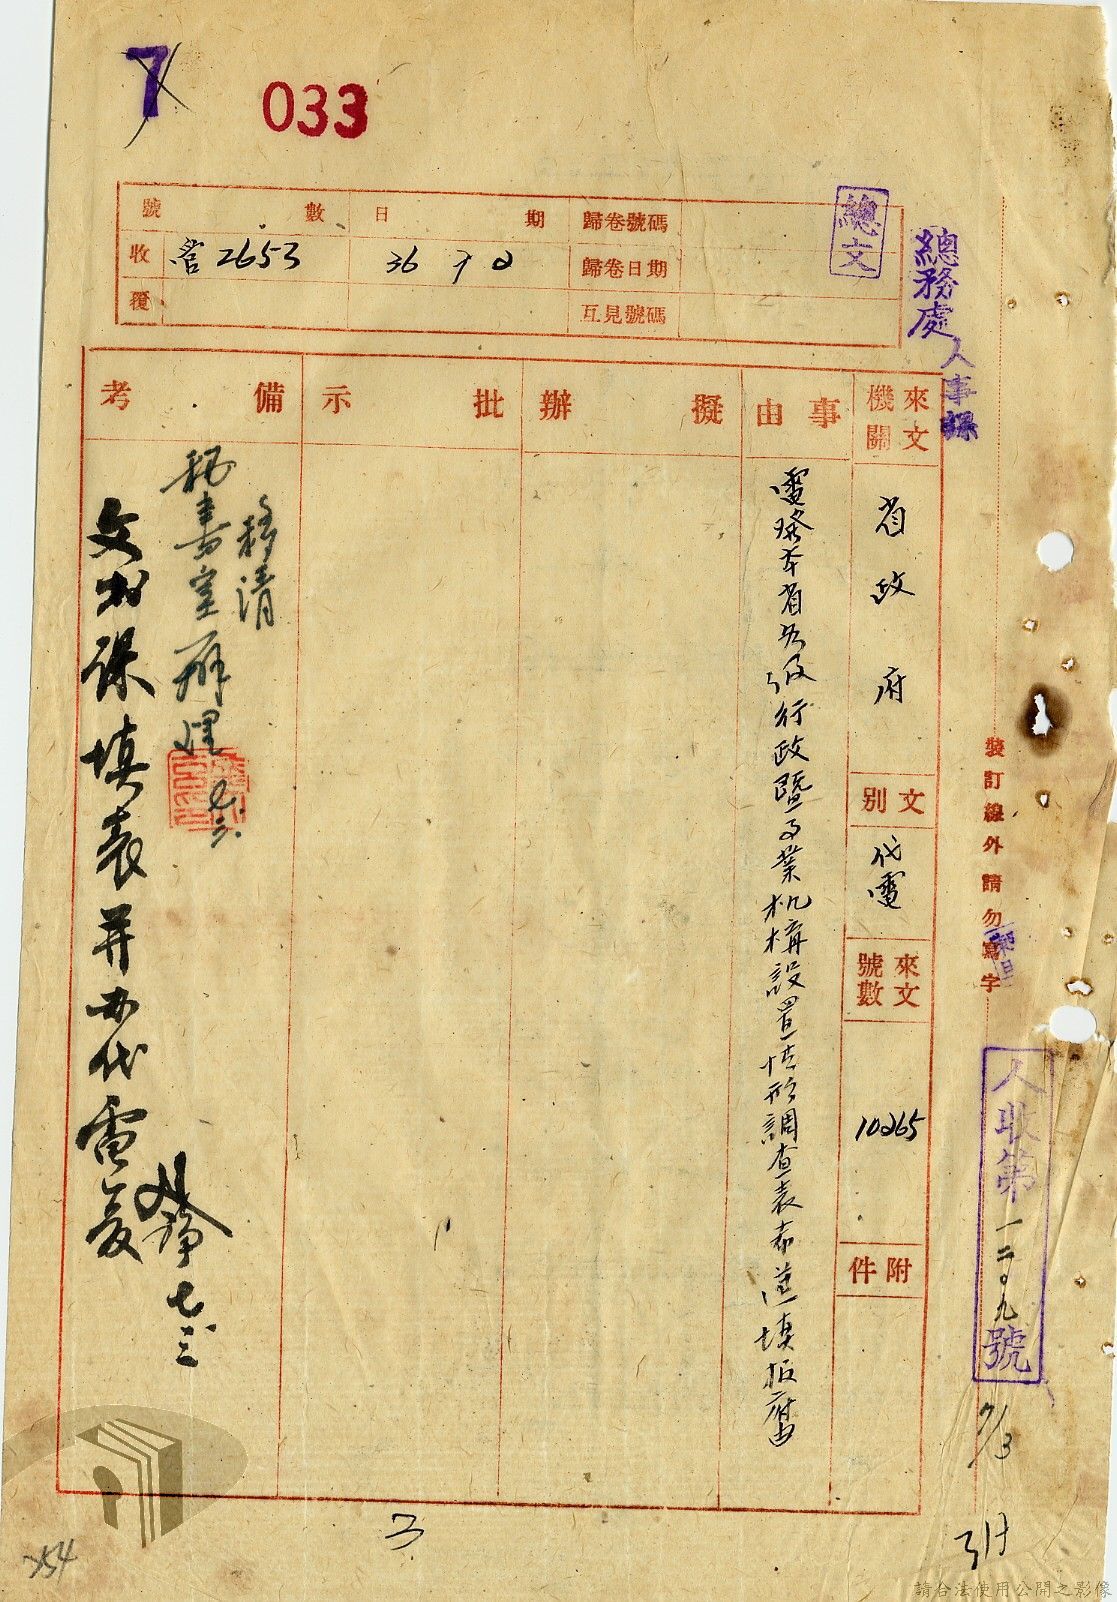 7
033
號數
日期
歸卷號碼
收
2653
36 7 2
歸卷日期
覆
互見號碼
總文
總務處
人事課
來文機關
省政府
文別
代電
來文號數
10265
附件
事由
電發本省各級行政暨事業机構設置情形調查表希逕填報府由
擬辦
批示
備考
移請
秘書室辦理
七.三.
文書課填表并办代電复
七.三
裝訂線外請勿寫字
人收第一二〇九號
7/3
3
354
請合法使用公開之影像